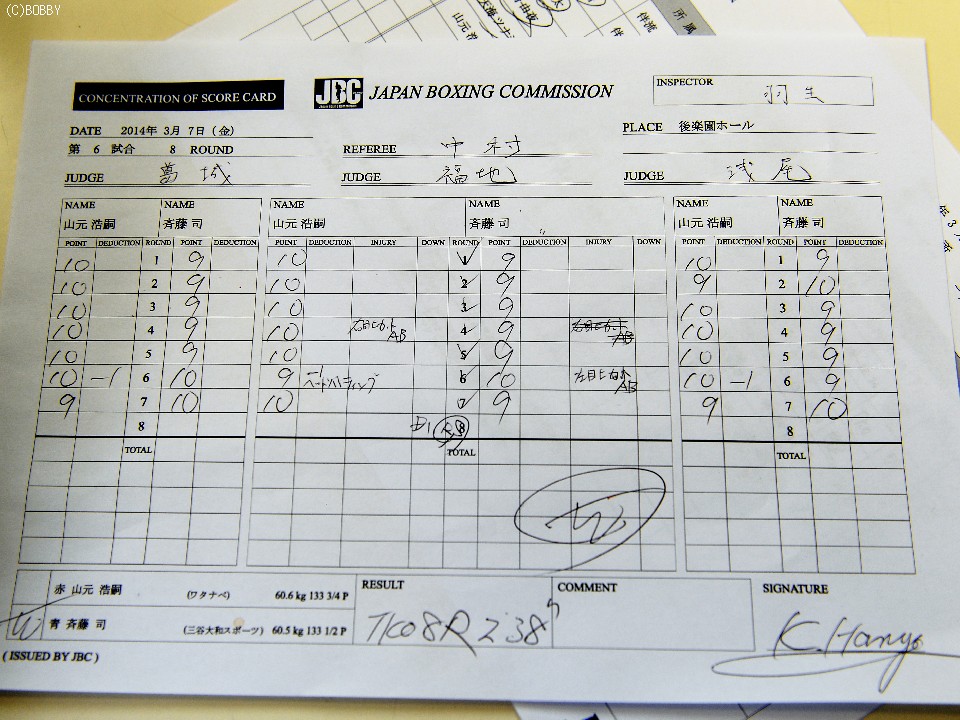 (C)BOBBY
所属
CONCENTRATION OF SCORE CARD
JBC JAPAN BOXING COMMISSION
INSPECTOR 羽生
DATE 2014年 3月 7日 (金)
PLACE 後楽園ホール
第 6 試合 8 ROUND
REFEREE 中村
JUDGE 葛城
JUDGE 福地
JUDGE 浅尾
NAME NAME NAME NAME NAME NAME
山元 浩嗣 斉藤 司 山元 浩嗣 斉藤 司 山元 浩嗣 斉藤 司
POINT DEDUCTION ROUND POINT DEDUCTION POINT DEDUCTION INJURY DOWN ROUND POINT DEDUCTION INJURY DOWN POINT DEDUCTION ROUND POINT DEDUCTION
10 1 9 10 1 9 10 1 9
10 2 9 10 2 9 9 2 10
10 3 9 10 3 9 10 3 9
10 4 9 10 AB 4 9 AB 10 4 9
10 5 9 10 5 9 10 5 9
10 -1 6 10 9 -1 ヘッドバッティング 6 10 AB 10 -1 6 9
9 7 10 10 7 9 9 7 10
8 8 8
TOTAL TOTAL TOTAL
赤 山元 浩嗣 (ワタナベ) 60.6 kg 133 3/4 P
青 斉藤 司 (三谷大和スポーツ) 60.5 kg 133 1/2 P
RESULT
TKO 8R 2'38"
COMMENT
SIGNATURE
K.Hanyu
( ISSUED BY JBC )